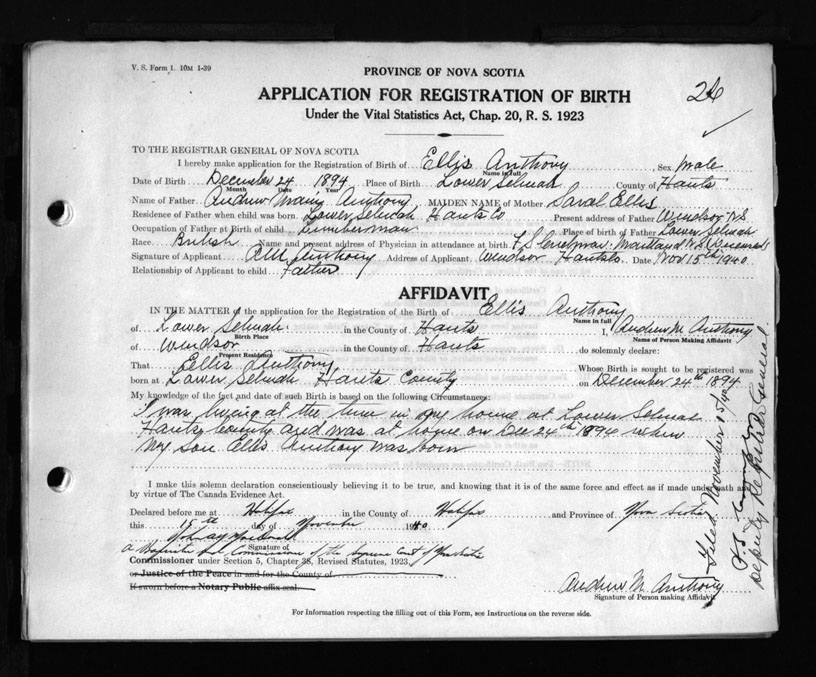 V. S. Form 1. 10M 1-39
26
PROVINCE OF NOVA SCOTIA
APPLICATION FOR REGISTRATION OF BIRTH
Under the Vital Statistics Act, Chap. 20, R. S. 1923
TO THE REGISTRAR GENERAL OF NOVA SCOTIA
I hereby make application for the Registration of Birth of Ellis Anthony Sex Male
Name in full
Date of Birth December 24 1894 Place of Birth Lower Selmah County of Hants
Month Date Year
Name of Father Andrew Anthony MAIDEN NAME of Mother Sarah Ellis
Residence of Father when child was born Lower Selmah Hants Co Present address of Father Windsor NS
Occupation of Father at Birth of child Lumberman Place of Birth of Father Lower Selmah
Race British Name and present address of Physician in attendance at birth Maitland N.S. Deceased
Signature of Applicant A M Anthony Address of Applicant Windsor Hants Co Date Nov 15th 1940
Relationship of Applicant to child Father
AFFIDAVIT
IN THE MATTER of the application for the Registration of the Birth of Ellis Anthony
Name in full
of Lower Selmah in the County of Hants I, Andrew M. Anthony
Birth Place Name of Person Making Affidavit
of Windsor in the County of Hants do solemnly declare:
Present Residence
That Ellis Anthony Whose Birth is sought to be registered was
born at Lower Selmah Hants County on December 24th 1894
My knowledge of the fact and date of such Birth is based on the following Circumstances:
I was living at the time in my home at Lower Selmah
Hants County and was at home on Dec 24th 1894 when
My son Ellis Anthony was born
I make this solemn declaration conscientiously believing it to be true, and knowing that it is of the same force and effect as if made under oath and
by virtue of The Canada Evidence Act.
Declared before me at Halifax in the County of Halifax and Province of Nova Scotia
this 15th day of November 1940
Signature of
a Commissioner of the Supreme Court of Nova Scotia
Commissioner under Section 5, Chapter 38, Revised Statutes, 1923
or Justice of the Peace in and for the County of
If sworn before a Notary Public affix seal.
Andrew M. Anthony
Signature of Person making Affidavit.
For Information respecting the filling out of this Form, see Instructions on the reverse side.
Filed November 15/40
Deputy Registrar General